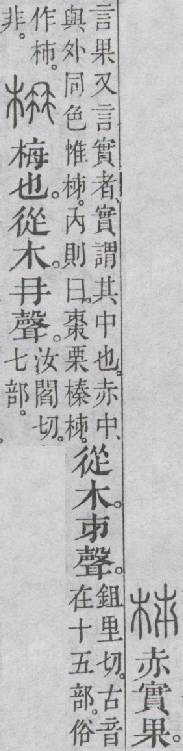 柹赤實果。
言果又言實者。實謂其中也。赤中
與外同色惟柹。內則曰。棗栗榛柹。
從木𠂔聲。
鉏里切。古音
在十五部。俗
作柿。
非。
枏梅也。從木冄聲。
汝閻切。
七部。